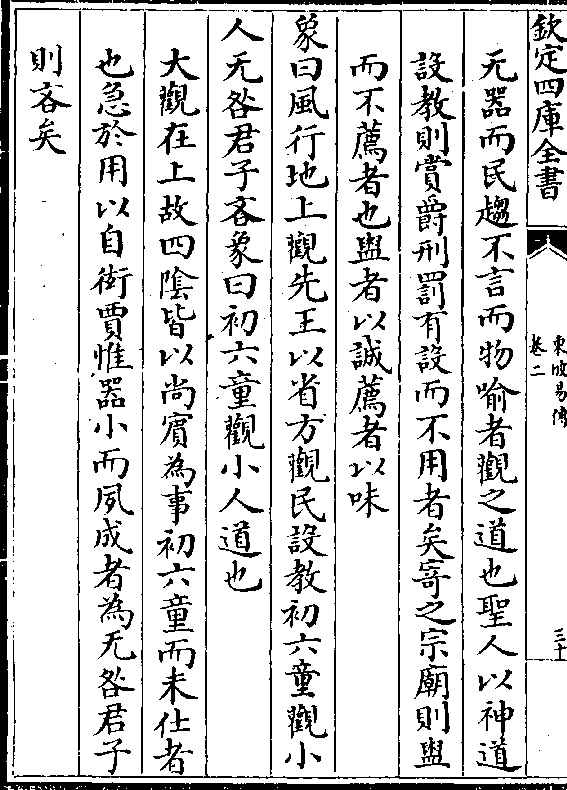 欽定四庫全書
東坡易傳
卷二
三十
无器而民趨不言而物喻者觀之道也聖人以神道
設教則賞爵刑罰有設而不用者矣寄之宗廟則盥
而不薦者也盥者以誠薦者以味
象曰風行地上觀先王以省方觀民設教初六童觀小
人无咎君子吝象曰初六童觀小人道也
大觀在上故四陰皆以尚賓為事初六童而未仕者
也急於用以自衒賈惟器小而夙成者為无咎君子
則吝矣